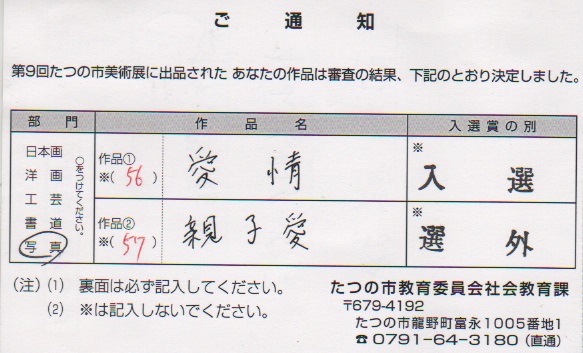 ご通知
第9回たつの市美術展に出品された あなたの作品は審査の結果、下記のとおり決定しました。
部門 作品名 入選賞の別
日本画
洋画
工芸
書道
写真
○をつけてください。
作品① ※(56) 愛情 ※入選
作品② ※(57) 親子愛 ※選外
(注) (1) 裏面は必ず記入してください。
(2) ※は記入しないでください。
たつの市教育委員会社会教育課
〒679-4192
たつの市龍野町富永1005番地1
☎ 0791-64-3180 (直通)